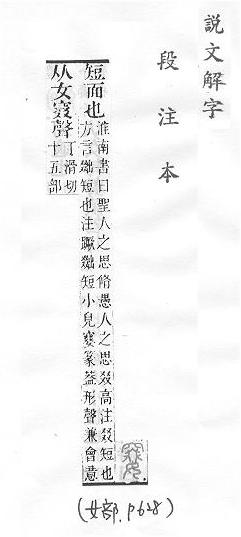 説文解字
段注本
短面也
淮南書曰聖人之思脩愚人之思叕高注叕短也
方言短也注蹶短小兒窡篆葢形聲兼會意
从女窡聲
丁滑切
十五部
(女部.P628)